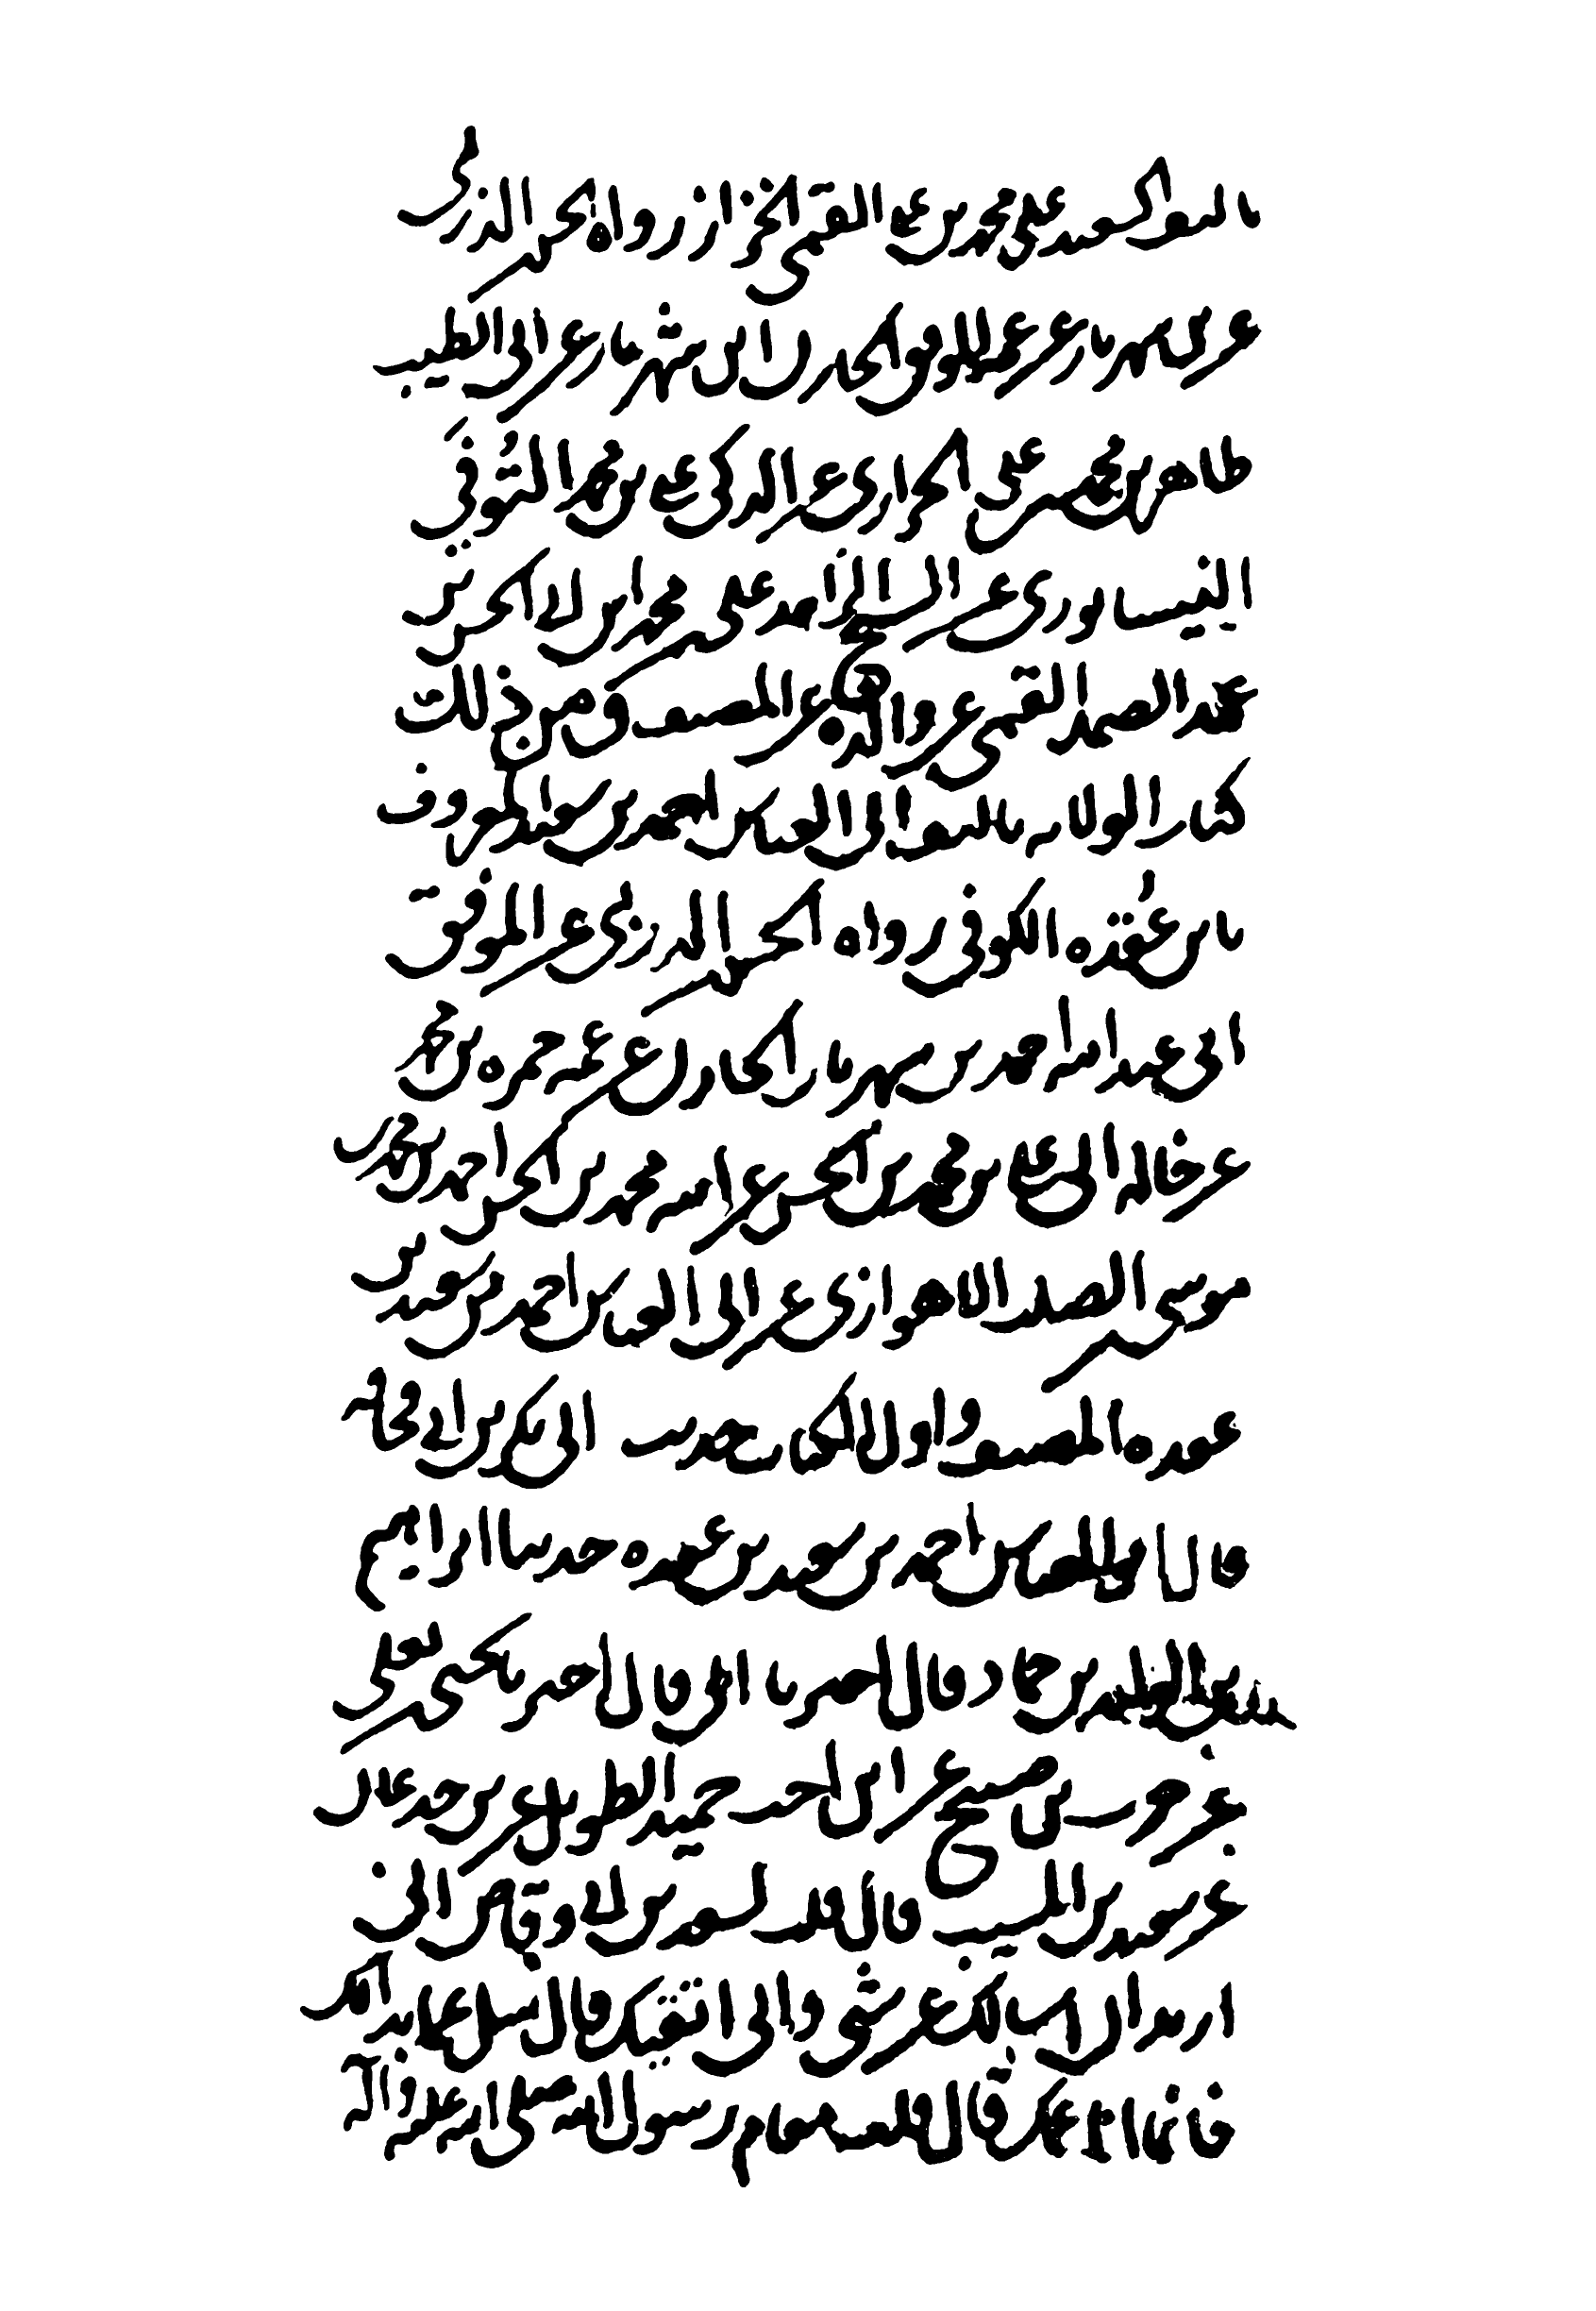 تاليف السعيد على بن محمد بن على القمى الخزاز رواه الحمدانى القزوينى
عن ابن شهريار عن عمه الموفق الخازن ابن شهريار عن ابى الطيب
طاهر بن محمد بن على الحوارى عن الزكى على بن محمد التوثى
النيسابورى عن الشيخ الزاهد على بن محمد ابن ابى الحسن بن
عبد الصمد القمى عن والده عن المصنف ومن ذلك
كتاب الولاية تاليف ابى العباس احمد بن سعيد المعروف
بابن عقدة الكوفى رواه الحمدانى القزوينى عن الموفق
ابى عبد الله احمد بن شهريار الخازن عن عمه حمزة بن محمد
عن خاله ابى على بن محمد بن الحسن عن ابيه محمد بن الحسن احمد بن محمد بن
موسى الصلت الاهوازى عن ابى العباس احمد بن سعيد بن
عقدة المصنف واول الكتاب حديث ابى بكر بن ابى قحافة
قال ابو العباس احمد بن سعيد بن عقدة حدثنا ابراهيم
بن الوليد بن حماد قال اخبرنا ابى قال اخبرنا يحيى بن يعلى
عن حرب بن صبيح عن ابن اخت حميد الطويل عن ابن جدعان
عن سعيد بن المسيب قال قلت لسعد بن ابى وقاص انى
اريد ان اسالك عن شى وانى اتقيك قال سل عما بدا لك
فانما انا عمك قال قلت مقام رسول الله صلى الله عليه وآله